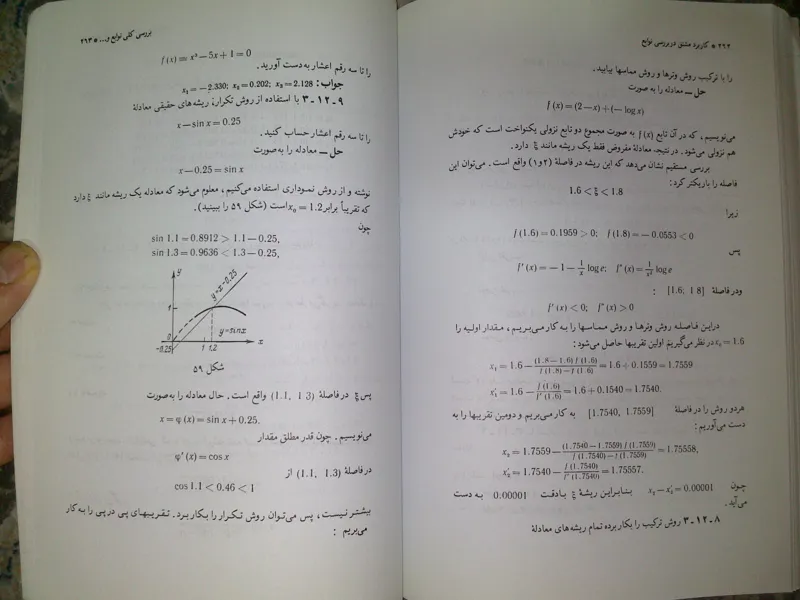 ۲۶۲ * کاربرد مشتق در بررسی توابع
را با ترکیب روش وترها و روش مماسها بیابید.
حل ــ معادله را به صورت
f (x) = (2 − x) + (− log x)
می‌نویسیم ، که در آن تابع f (x) به صورت مجموع دو تابع نزولی یکنواخت است که خودش
هم نزولی می‌شود. در نتیجه، معادلهٔ مفروض فقط یک ریشه مانند ξ دارد.
بررسی مستقیم نشان می‌دهد که این ریشه در فاصلهٔ (۲و۱) واقع است . می‌توان این
فاصله را باریکتر کرد:
1.6 < ξ < 1.8
زیرا
f (1.6) = 0.1959 > 0; f (1.8) = − 0.0553 < 0
پس
f′ (x) = − 1 − 1/x log e; f″ (x) = 1/x² log e
ودر فاصلهٔ [1.6; 1 8] :
f′ (x) < 0; f″ (x) > 0
دراین فاصله روش وترها و روش مماسها را به کار می‌بریم ، مقدار اولیه را
x₀ = 1.6 در نظر می‌گیریم اولین تقریبها حاصل می‌شود :
x₁ = 1.6 − (1.8 − 1.6) f (1.6) / f (1.8) − f (1.6) = 1.6 + 0.1559 = 1.7559
x′₁ = 1.6 − f (1.6) / f′ (1.6) = 1.6 + 0.1540 = 1.7540.
هردو روش را در فاصلهٔ [1.7540, 1.7559] به کار می‌بریم و دومین تقریبها را به
دست می‌آوریم :
x₂ = 1.7559 − (1.7540 − 1.7559) f (1.7559) / f (1.7540) − f (1.7559) = 1.75558,
x′₂ = 1.7540 − f (1.7540) / f′ (1.7540) = 1.75557.
چون x₂ − x′₂ = 0.00001 بنابراین ریشهٔ ξ بادقت 0.00001 به دست
می‌آید .
۳-۱۲-۸ روش ترکیب را بکار برده تمام ریشه‌های معادلهٔ
بررسی کلی توابع و... * ۲۶۳
f (x) = x³ − 5x + 1 = 0
را تا سه رقم اعشار به‌دست آورید .
جواب: x₁ = − 2.330; x₂ = 0.202; x₃ = 2.128
۳-۱۲-۹ با استفاده از روش تکرار، ریشه‌های حقیقی معادلهٔ
x − sin x = 0.25
را تا سه رقم اعشار حساب کنید .
حل ــ معادله را به‌صورت
x − 0.25 = sin x
نوشته و از روش نموداری استفاده می‌کنیم ، معلوم می‌شود که معادله یک ریشه مانند ξ دارد
که تقریباً برابر x₀ = 1.2 است (شکل ۵۹ را ببینید).
چون
sin 1.1 = 0.8912 > 1.1 − 0.25,
sin 1.3 = 0.9636 < 1.3 − 0.25,
y
y=x-0.25
1
y=sinx
0
-0.25
1 1,2
x
شکل ۵۹
پس ξ در فاصلهٔ (1.1, 1 3) واقع است . حال معادله را به‌صورت
x = φ (x) = sin x + 0.25.
می‌نویسیم . چون قدر مطلق مقدار
φ′ (x) = cos x
در فاصلهٔ (1.1, 1.3) از
cos 1.1 < 0.46 < 1
بیشتر نیست ، پس می‌توان روش تکرار را بکار برد . تقریبهای پی در پی را به کار
می‌بریم :